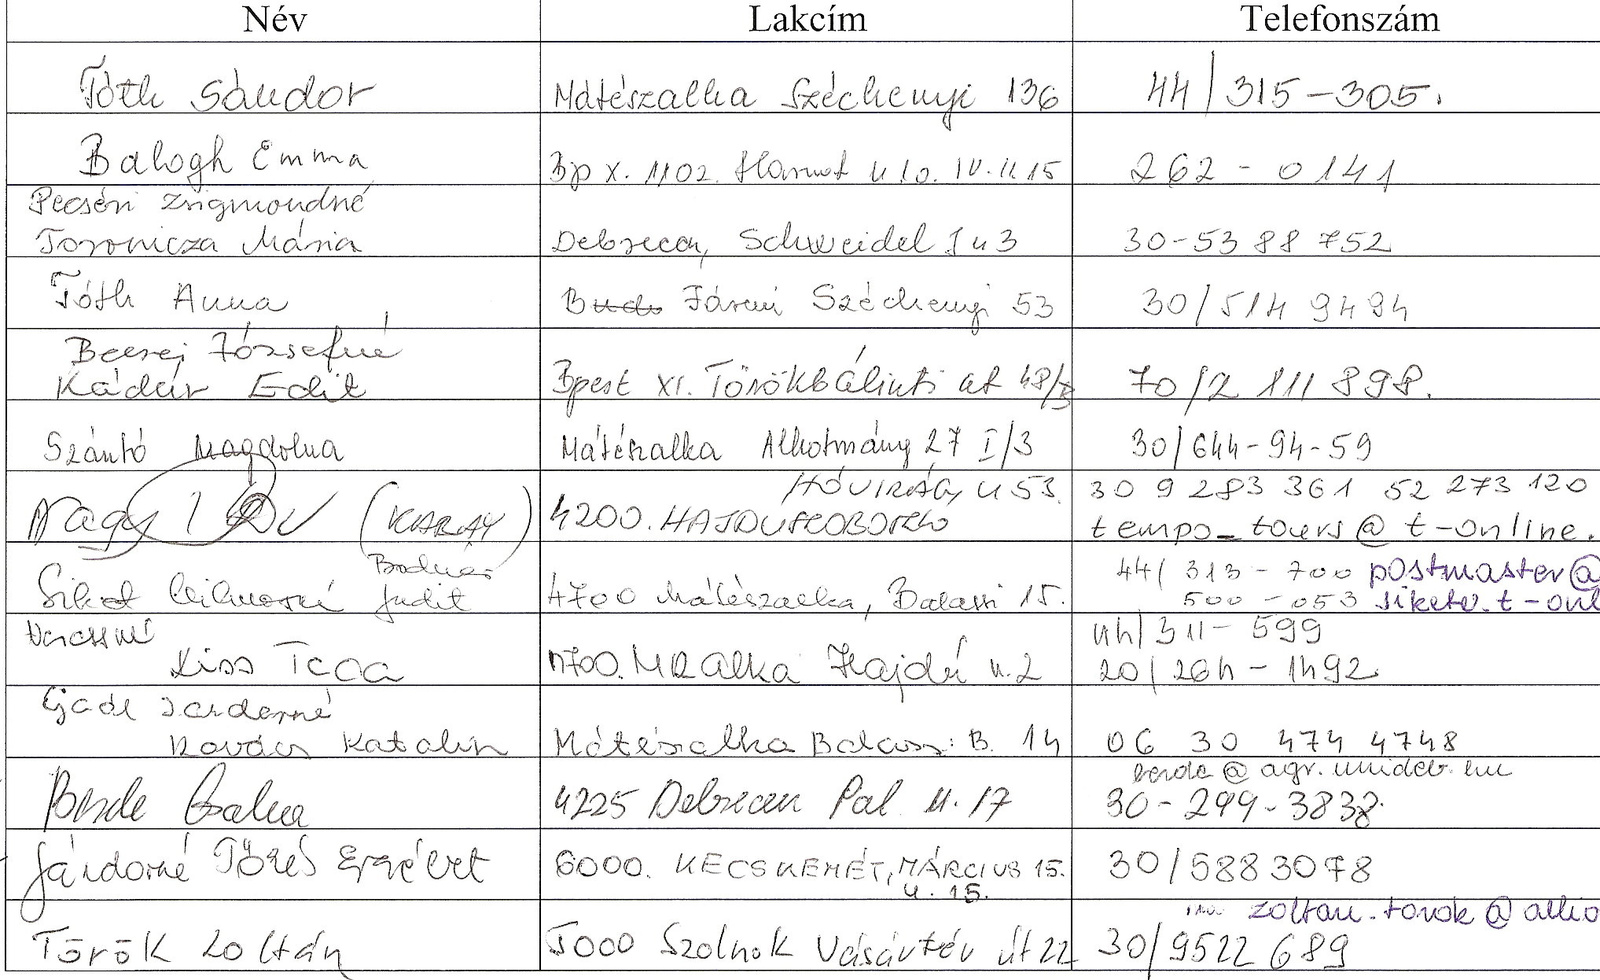 Név Lakcím Telefonszám
Tóth Sándor Mátészalka Széchenyi 136 44/315-305.
Balogh Emma Bp X. 1102. Harmat u 10. IV. II. 15 262-0141
Pecséri Zsigmondné
Toronicza Mária Debrecen, Schweidel J u 3 30-53 88 752
Tóth Anna Jármi Széchenyi 53 30/514 9494
Józsefné
Kádár Edit Bpest XI. Törökbálinti út 48/B 70/2 111 898.
Szántó Magdolna Mátészalka Alkotmány 27 I/3 30/644-94-59
HÓVIRÁG U 53. 30 9 283 361 52 273 120
Nagy 4200. HAJDÚSZOBOSZLÓ tempo_tours@t-online.
44/313-700 postmaster@
Judit 4700 Mátészalka, Balassi 15. 500-053 siketv.t-onl
44/311-599
Kiss 4700. M Hajdú u. 2 20/264-1492
Kovács Katalin Mátészalka Balassi B. 14 06 30 474 4748
berde@agr.unideb.hu
Berde Csaba 4225 Debrecen Pal u. 17 30-299-3838
Járdorné Erzsébet 6000. KECSKEMÉT, MÁRCIUS 15. 30/5883078
u. 15.
zoltan.torok@allio
Török Zoltán 5000 Szolnok Vásártér út 22 30/9522 689